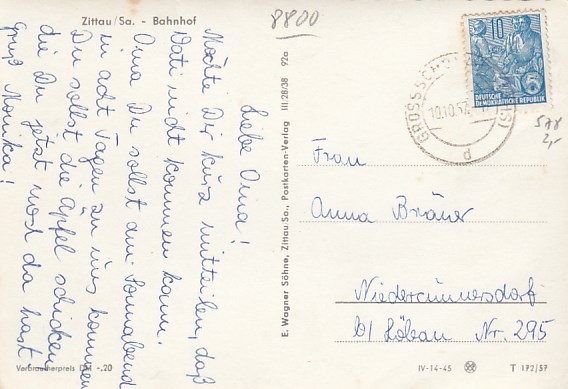 Zittau/Sa. - Bahnhof
8800
Liebe Oma!
Möchte Dir kurz mitteilen, daß
Vati nicht kommen kann.
Oma Du sollst am Sonnabend
in acht Tagen zu uns kommen
Du sollst die Äpfel schicken
die Du jetzt noch da hast
Gruß Monika!
Verbraucherpreis DM -.20
E. Wagner Söhne, Zittau/Sa., Postkarten-Verlag III/28/38 92a
10
DEUTSCHE
DEMOKRATISCHE REPUBLIK
10.10.57
d
578
2,-
Frau
Anna Bräuer
Niedercunnersdorf
b/ Löbau Nr. 295
IV-14-45
T 172/57